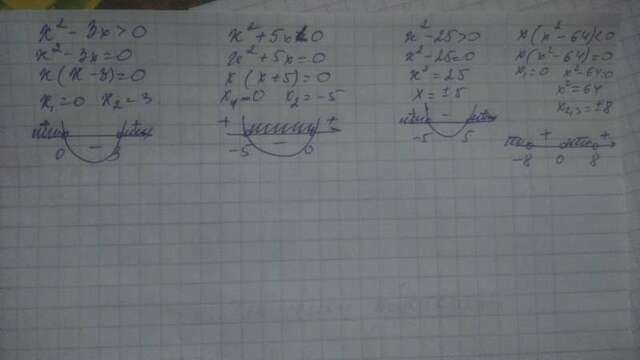 x² - 3x > 0
x² - 3x = 0
x(x - 3) = 0
x₁ = 0 x₂ = 3
+ - +
0 3
x² + 5x < 0
x² + 5x = 0
x(x + 5) = 0
x₁ = 0 x₂ = -5
+ - +
-5 0
x² - 25 > 0
x² - 25 = 0
x² = 25
x = ±5
+ - +
-5 5
x(x² - 64) < 0
x(x² - 64) = 0
x₁ = 0 x² - 64 = 0
x² = 64
x₂,₃ = ±8
- + - +
-8 0 8